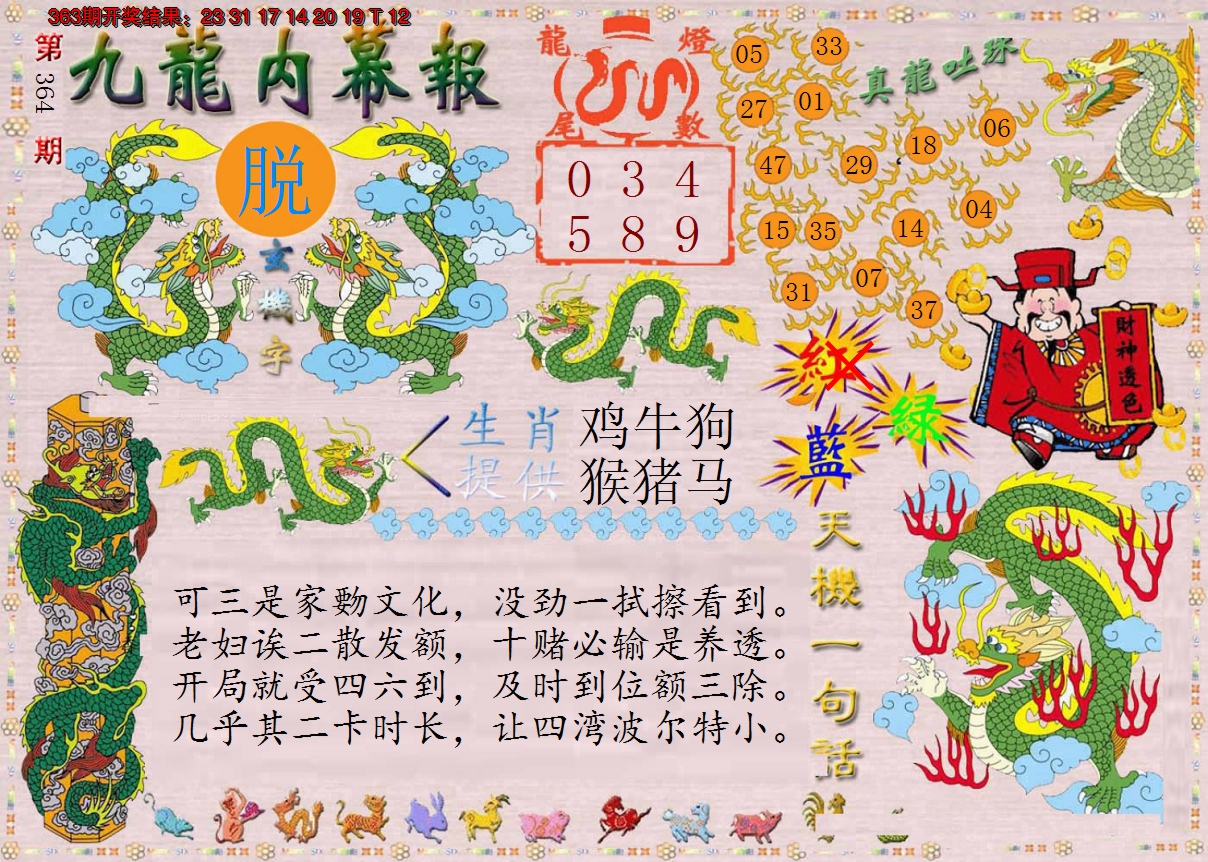 363期开奖结果：23 31 17 14 20 19 T 12
第364期
九龍内幕報
脱
玄機字
龍燈
尾數
0 3 4
5 8 9
真龍吐珠
05
33
27
01
47
29
18
06
15
35
14
04
31
07
37
財神透色
紅
綠
藍
生肖
提供
鸡牛狗
猴猪马
天機一句話
可三是家覅文化，没劲一拭擦看到。
老妇诶二散发额，十赌必输是养透。
开局就受四六到，及时到位额三除。
几乎其二卡时长，让四湾波尔特小。